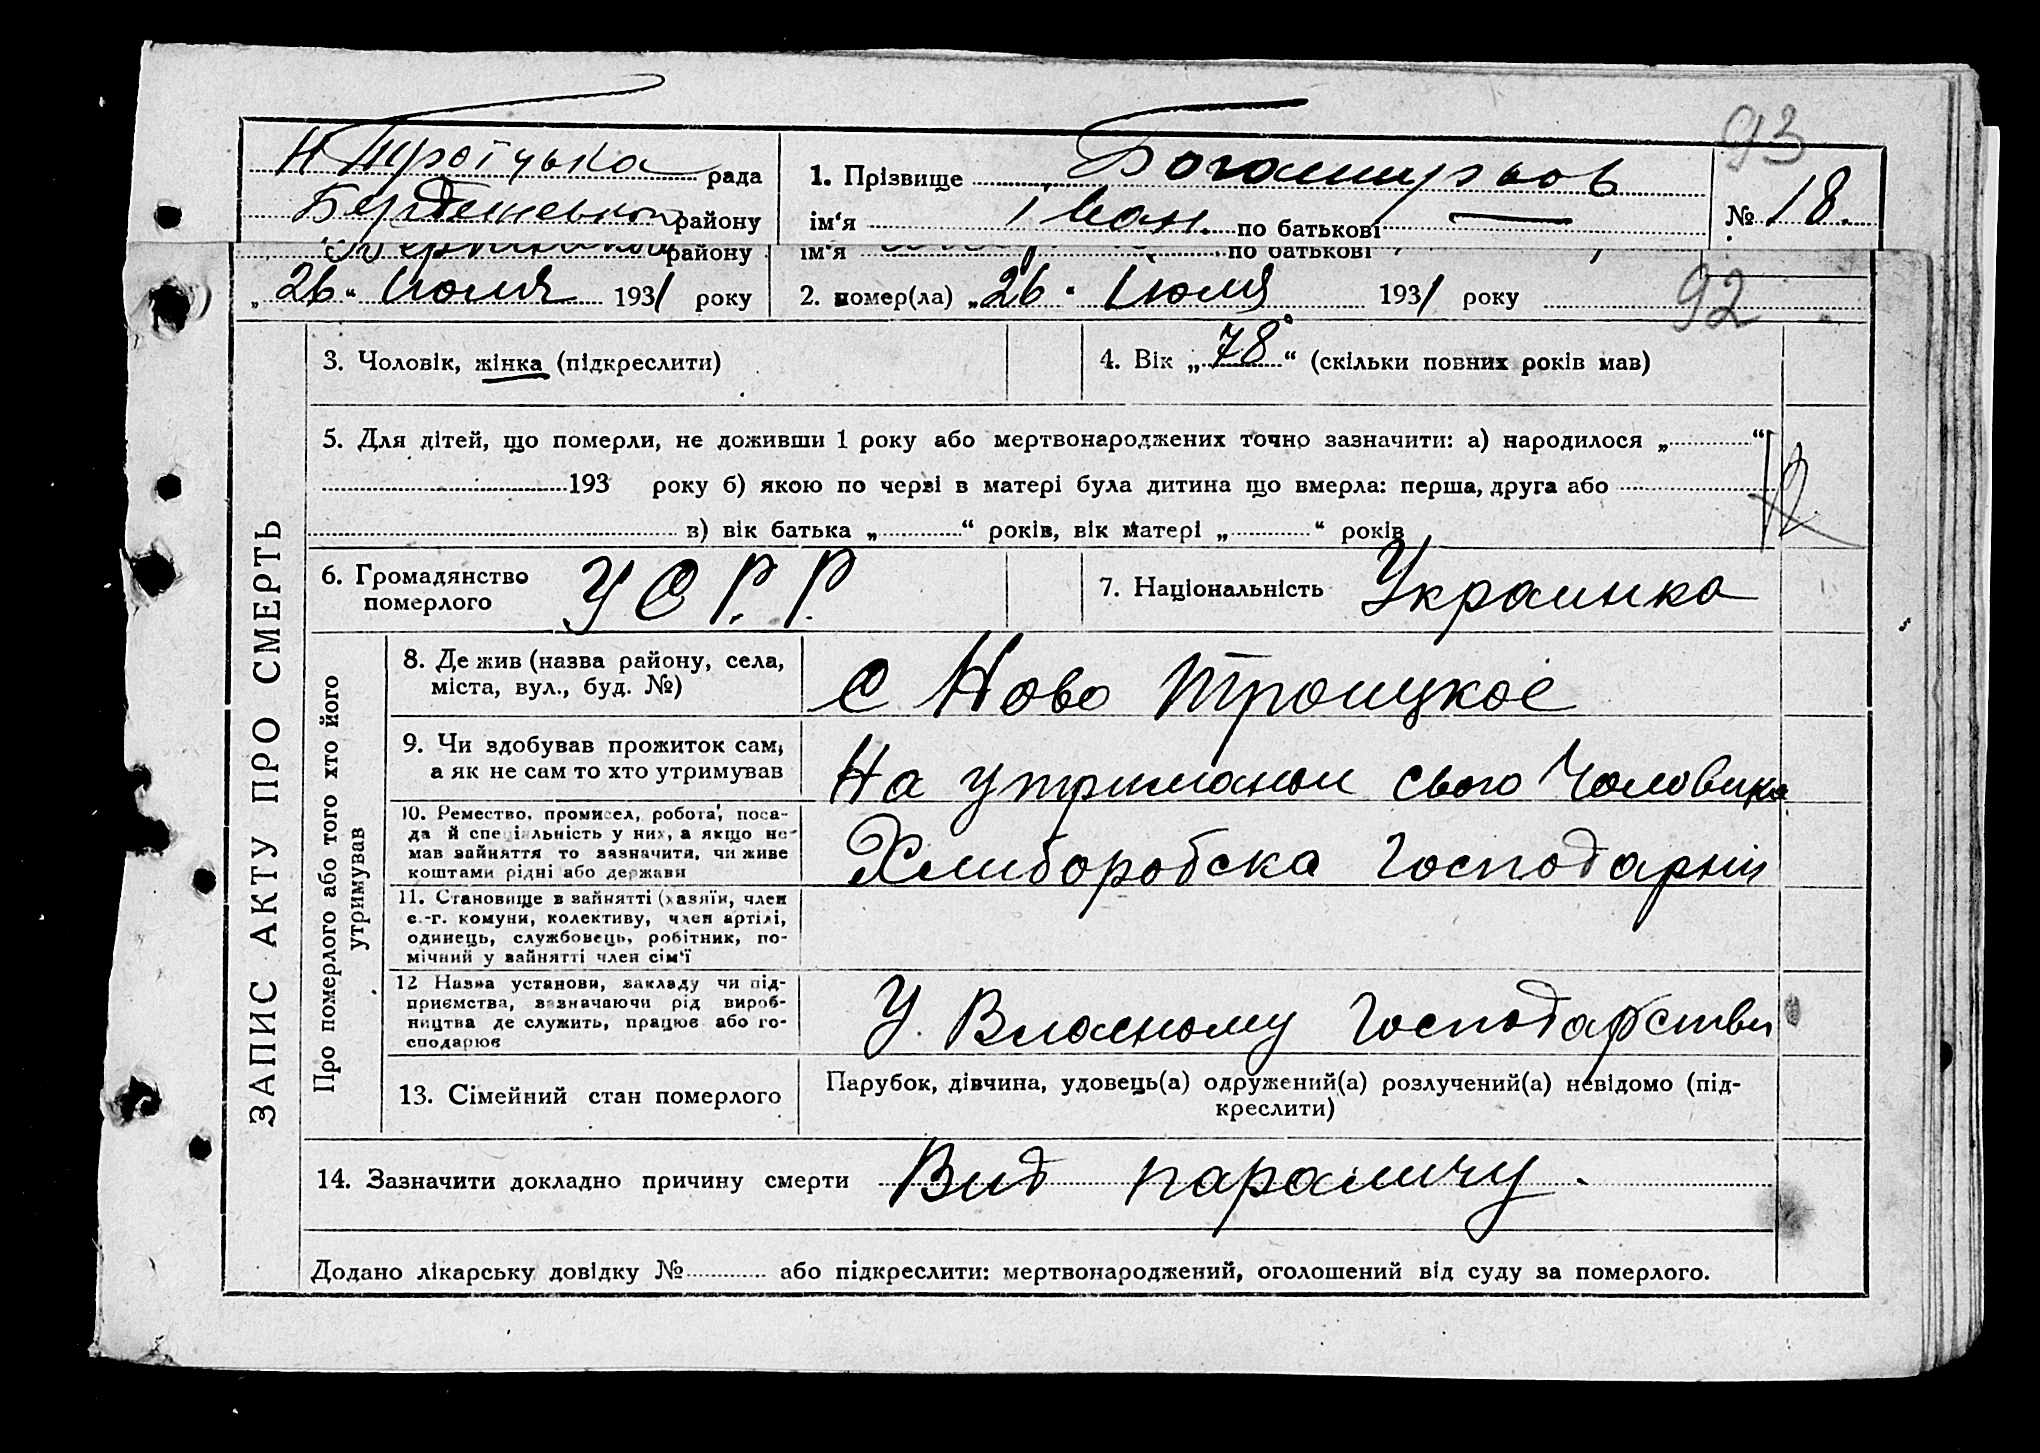 93
Н Троїцька рада
Бердянський району
1. Прізвище Богатирьов
ім'я Іван по батькові —
№ 18.
району
ім'я по батькові
„26“ Июля 1931 року
2. помер(ла) „26“ Июля 1931 року
92
ЗАПИС АКТУ ПРО СМЕРТЬ
3. Чоловік, жінка (підкреслити)
4. Вік „78“ (скільки повних років мав)
5. Для дітей, що померли, не доживши 1 року або мертвонароджених точно зазначити: а) народилося „ “
193 року б) якою по черзі в матері була дитина що вмерла: перша, друга або
в) вік батька „ “ років, вік матері „ “ років
6. Громадянство
померлого
УСРР.
7. Національність Украинка
Про померлого або того хто його
утримував
8. Де жив (назва району, села,
міста, вул., буд. №)
С Ново Троицкое
9. Чи здобував прожиток сам,
а як не сам то хто утримував
На утриманьи сього Чоловика
10. Ремество, промисел, робота, поса-
да й спеціальність у них, а якщо не
мав зайняття то зазначити, чи живе
коштами рідні або держави
Хлиборобска господарни
11. Становище в зайнятті (хазяїн, член
с.-г. комуни, колективу, член артілі,
одинець, службовець, робітник, по-
мічний у зайнятті член сім'ї
12 Назва установи, закладу чи під-
приємства, зазначаючи рід вироб-
ництва де служить, працює або го-
сподарює
У. Власному Господарстви
13. Сімейний стан померлого
Парубок, дівчина, удовець(а) одружений(а) розлучений(а) невідомо (під-
креслити)
14. Зазначити докладно причину смерти Вид параличу.
Додано лікарську довідку № або підкреслити: мертвонароджений, оголошений від суду за померлого.